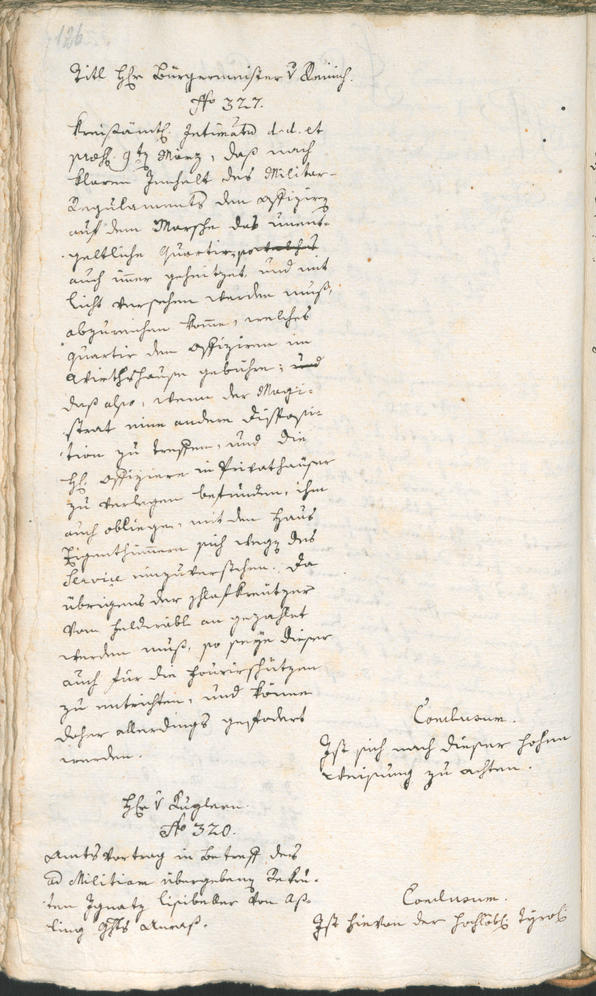 126
Titl Hr Bürgermeister v Remich.
No 327.
Kreisämtl. Intimatum d. d. et
præs. 9t März, daß nach
klarem Innhalt des Militar-
Regulaments dem Offiziers
auf dem Marsche das unent-
geltliche Quartier
auch immer geheitzet, und mit
licht versehen werden muß,
abzureichen komme, welches
Quartier dem Offizieren im
Wirthshause gebühre; und
daß also, wenn der Magi-
strat eine andere Disposi-
tion zu treffen, und die
HH. Offiziere in Privathäuser
zu verlegen befunden, ihm
auch obliege, mit den Haus
Eigenthümern sich wegen des
Service einzuverstehen. Da
übrigens der Schlafkreutzer
vom Feldwäbl an gezahlet
werden muß, so seye dieser
auch für die Fourierschützen
zu entrichten, und könne
daher allerdings gefodert
werden.
Conclusum.
Ist sich nach dieser hohen
Weisung zu achten.
Hr v Kuglern.
No 320.
Amtsvortrag in Betreff des
ad Militiam übergebenen Rekru-
ten Ignatz von Aß-
ling Ghts Anraß.
Conclusum.
Ist hievon der hochlöbl. Tyrol